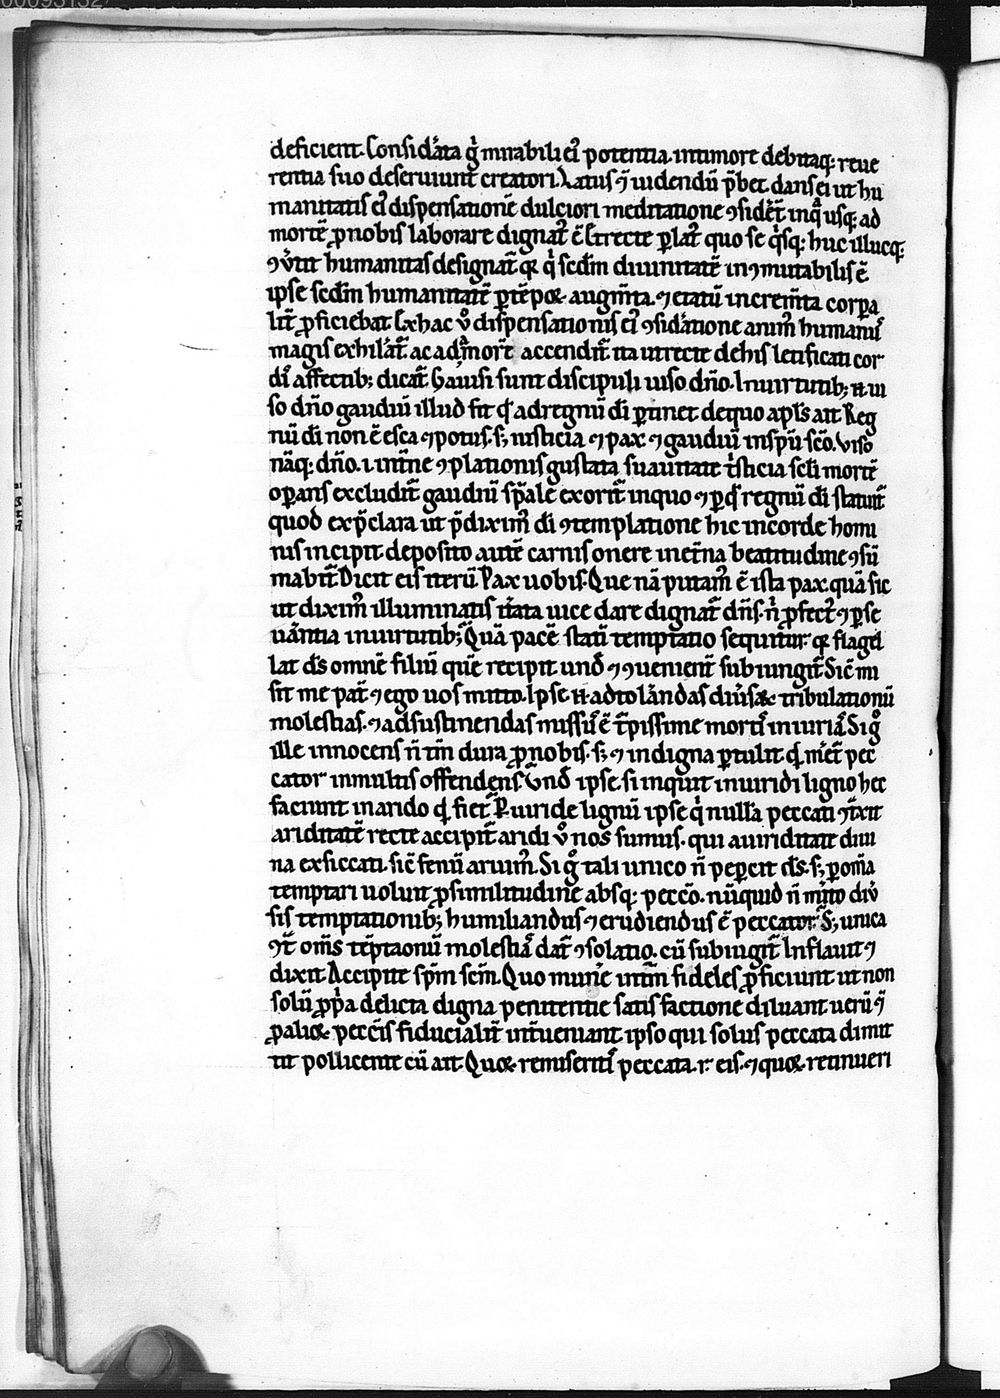 deficient. Considᷓata gͥ mirabili eiꝰ potentia. in timore debitaqꝫ reue
rentia suo deseruiunt creatori. Latus ꝫ uidendū p̄bet. dans ei ut hu
manitatis eiꝰ dispensationē dulciori meditatione ꝯsidēt inqͣ usqꝫ ad
mortē ꝓ nobis laborare dignat᷑ ē Et recte ꝑ latꝰ quo se qͥsqꝫ huc illucqꝫ
ꝯuͥtit humanitas designat᷑ qꝛ qͥ scdm diuinitatē inꝯmutabilis ē
ipse scdm humanitatē ꝑ tēpoꝝ augm̄ta. ⁊ etatū increm̄ta corpa
lit᷑ ꝓficiebat. Ex hac uͦ dispensationis eiꝰ ꝯsidᷓatione animꝰ humanꝰ
magis exhilarat᷑ ac ad amorē accendit᷑ ita ut recte de his letificati cor
dis affectibꝫ dicat᷑ Gauisi sunt discipuli uiso dn̄o. In uirtutibꝫ n̄ ui
so dn̄o gaudiū illud fit qᷓ ad regnū di ꝑtinet de quo apl̄s ait Reg
nū di non ē esca ⁊ potus. sꝫ iusticia ⁊ pax ⁊ gaudiū in sp̄u sc̄o. Viso
nāqꝫ dn̄o .i. int̄ne ꝯtēplationis gustata suauitate tͥsticia scl̄i mortē
oꝑans excludit᷑ gaudiū sp̄ale exorit᷑ in quo ⁊ ꝑ qᷓ regnū di statuit᷑
quod ex p̄clara ut p̄diximꝰ di ꝯtemplatione hic in corde homi
nis incipit deposito autē carnis onere in et̄na beatitudine ꝯsū
mabit᷑ Dicit eis iterū Pax uobis. Que nā putamꝰ ē ista pax. quā sic
ut diximꝰ illuminatis it̄ata uice dare dignat᷑ dn̄s. nͥ ꝓfectꝰ ⁊ ꝑse
uᷓantia in uirtutibꝫ Quā pacē statī temptatio sequitur. qꝛ flagel
lat ds omnē filiū quē recipit und̄ ⁊ ꝯuenient᷑ subiungit᷑ Sic̄ mi
sit me pat᷑ ⁊ ego uos mitto. Ipse n̄ ad tolᷓandas diuͥsaꝝ tribulationū
molestias. ⁊ ad sustinendas missꝰ ē t᷑pissime mortis iniuriā Si gͦ
ille innocens n̄ tm̄ dura ꝓ nobis. sꝫ ⁊ indigna ꝑtulit. qͥd m̄et᷑ pec
cator in multis offendens. Vnd̄ ipse. si inquit in uiridi ligno hec
faciunt in arido qͥd fiet᷑ Ꝑ uiride lignū ipse qͥ nulla peccati ꝯtͣxit
ariditatē recte accipit᷑ aridi uͦ nos sumus. qui a uiriditate diui
na exsiccati. sic̄ fenū aruimꝰ. Si gͦ tali unico n̄ peꝑcit ds. sꝫ ꝑ om̄ia
temptari uoluit ꝓ similitudine absqꝫ peccō. nūquid n̄ mͥto diuͥ
sis temptationibꝫ humiliandus ⁊ erudiendus ē peccator. Sꝫ unica
ꝯtͣ om̄s tēptaonū molestiā dat᷑ ꝯsolatio. cū subiungit᷑ Inflauit ⁊
dixit Accipite sp̄m sc̄m. Quo munͤe intīm fideles ꝓficiunt ut non
solū ꝓp̄a delicta digna penitentie satisfactione diluant uerū ꝫ
ꝓ alioꝝ pecc̄is fiducialit᷑ int̄ueniant ipso qui solus peccata dimit
tit pollicente cū ait. Quoꝝ remiseritis peccata. r. eis. ⁊ quoꝝ retinueri